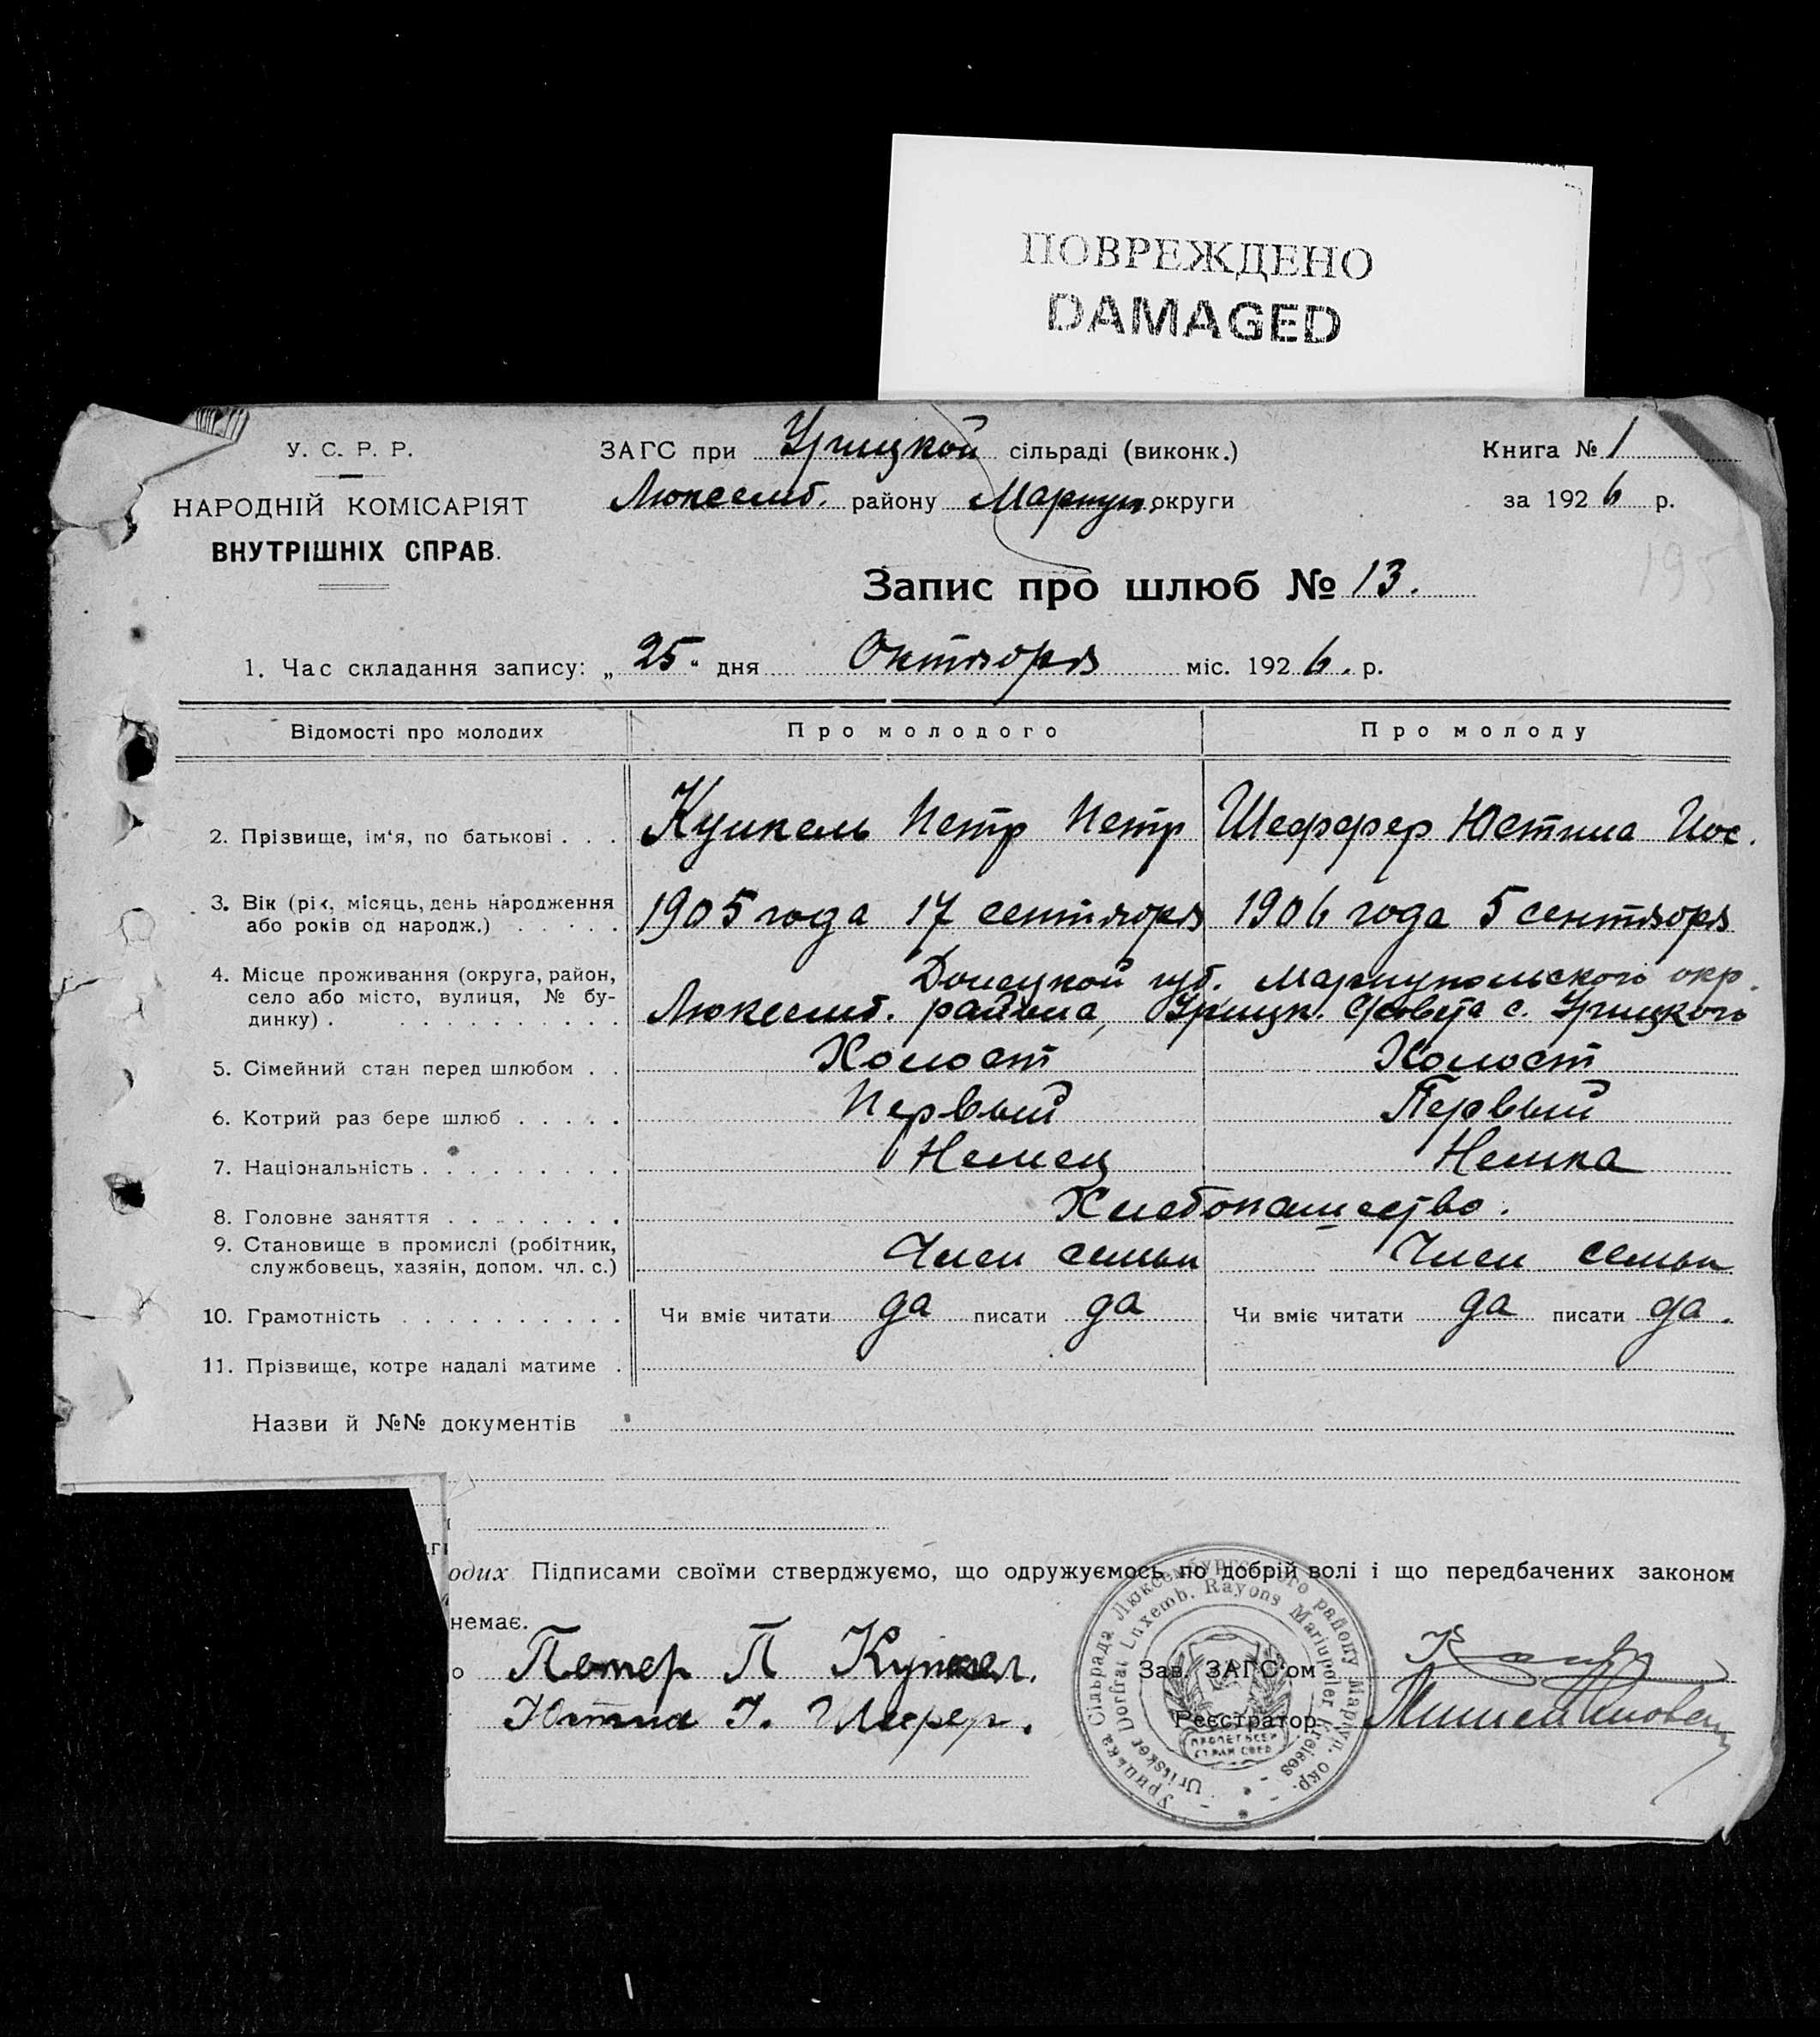 ПОВРЕЖДЕНО
DAMAGED
У. С. Р. Р.
НАРОДНІЙ КОМІСАРІЯТ
ВНУТРІШНІХ СПРАВ.
ЗАГС при Урицкой сільраді (виконк.)
Люксемб. району Мариуп. округи
Книга № 1
за 1926 р.
195
Запис про шлюб № 13.
1. Час складання запису: „25“ дня Октября міс. 1926. р.
Відомості про молодих Про молодого Про молоду
2. Прізвище, ім‘я, по батькові . . . Кункель Петр Петр Шеффер Юстина Иос.
3. Вік (рік, місяць, день народження
або років од народж.) . . . . . 1905 года 17 сентября 1906 года 5 сентября
4. Місце проживання (округа, район, Донецкой губ. Мариупольского окр.
село або місто, вулиця, № бу-
динку) . . . . . . . . . . Люксемб. района, Урицк. с/совета с. Урицкого
5. Сімейний стан перед шлюбом . . Холост Холост
6. Котрий раз бере шлюб . . . . . Первый Первый
7. Національність . . . . . . . . . Немец Немка
8. Головне заняття . . . . . . . . Хлебопашество.
9. Становище в промислі (робітник,
службовець, хазяін, допом. чл. с.) Член семьи Член семьи
10. Грамотність . . . . . . . . . . Чи вміє читати да писати да Чи вміє читати да писати да.
11. Прізвище, котре надалі матиме .
Назви й №№ документів
одих Підписами своїми стверджуємо, що одружуємось по добрій волі і що передбачених законом
немає.
о Петер П Кункел.
Юстина И. Шефер.
Зав. ЗАГС‘ом
Реєстратор
Урицька Сільрада Люксембургського району Маріуп. окр.
Uritsker Dorfrat Luxemb. Rayons Mariupoler Kreises